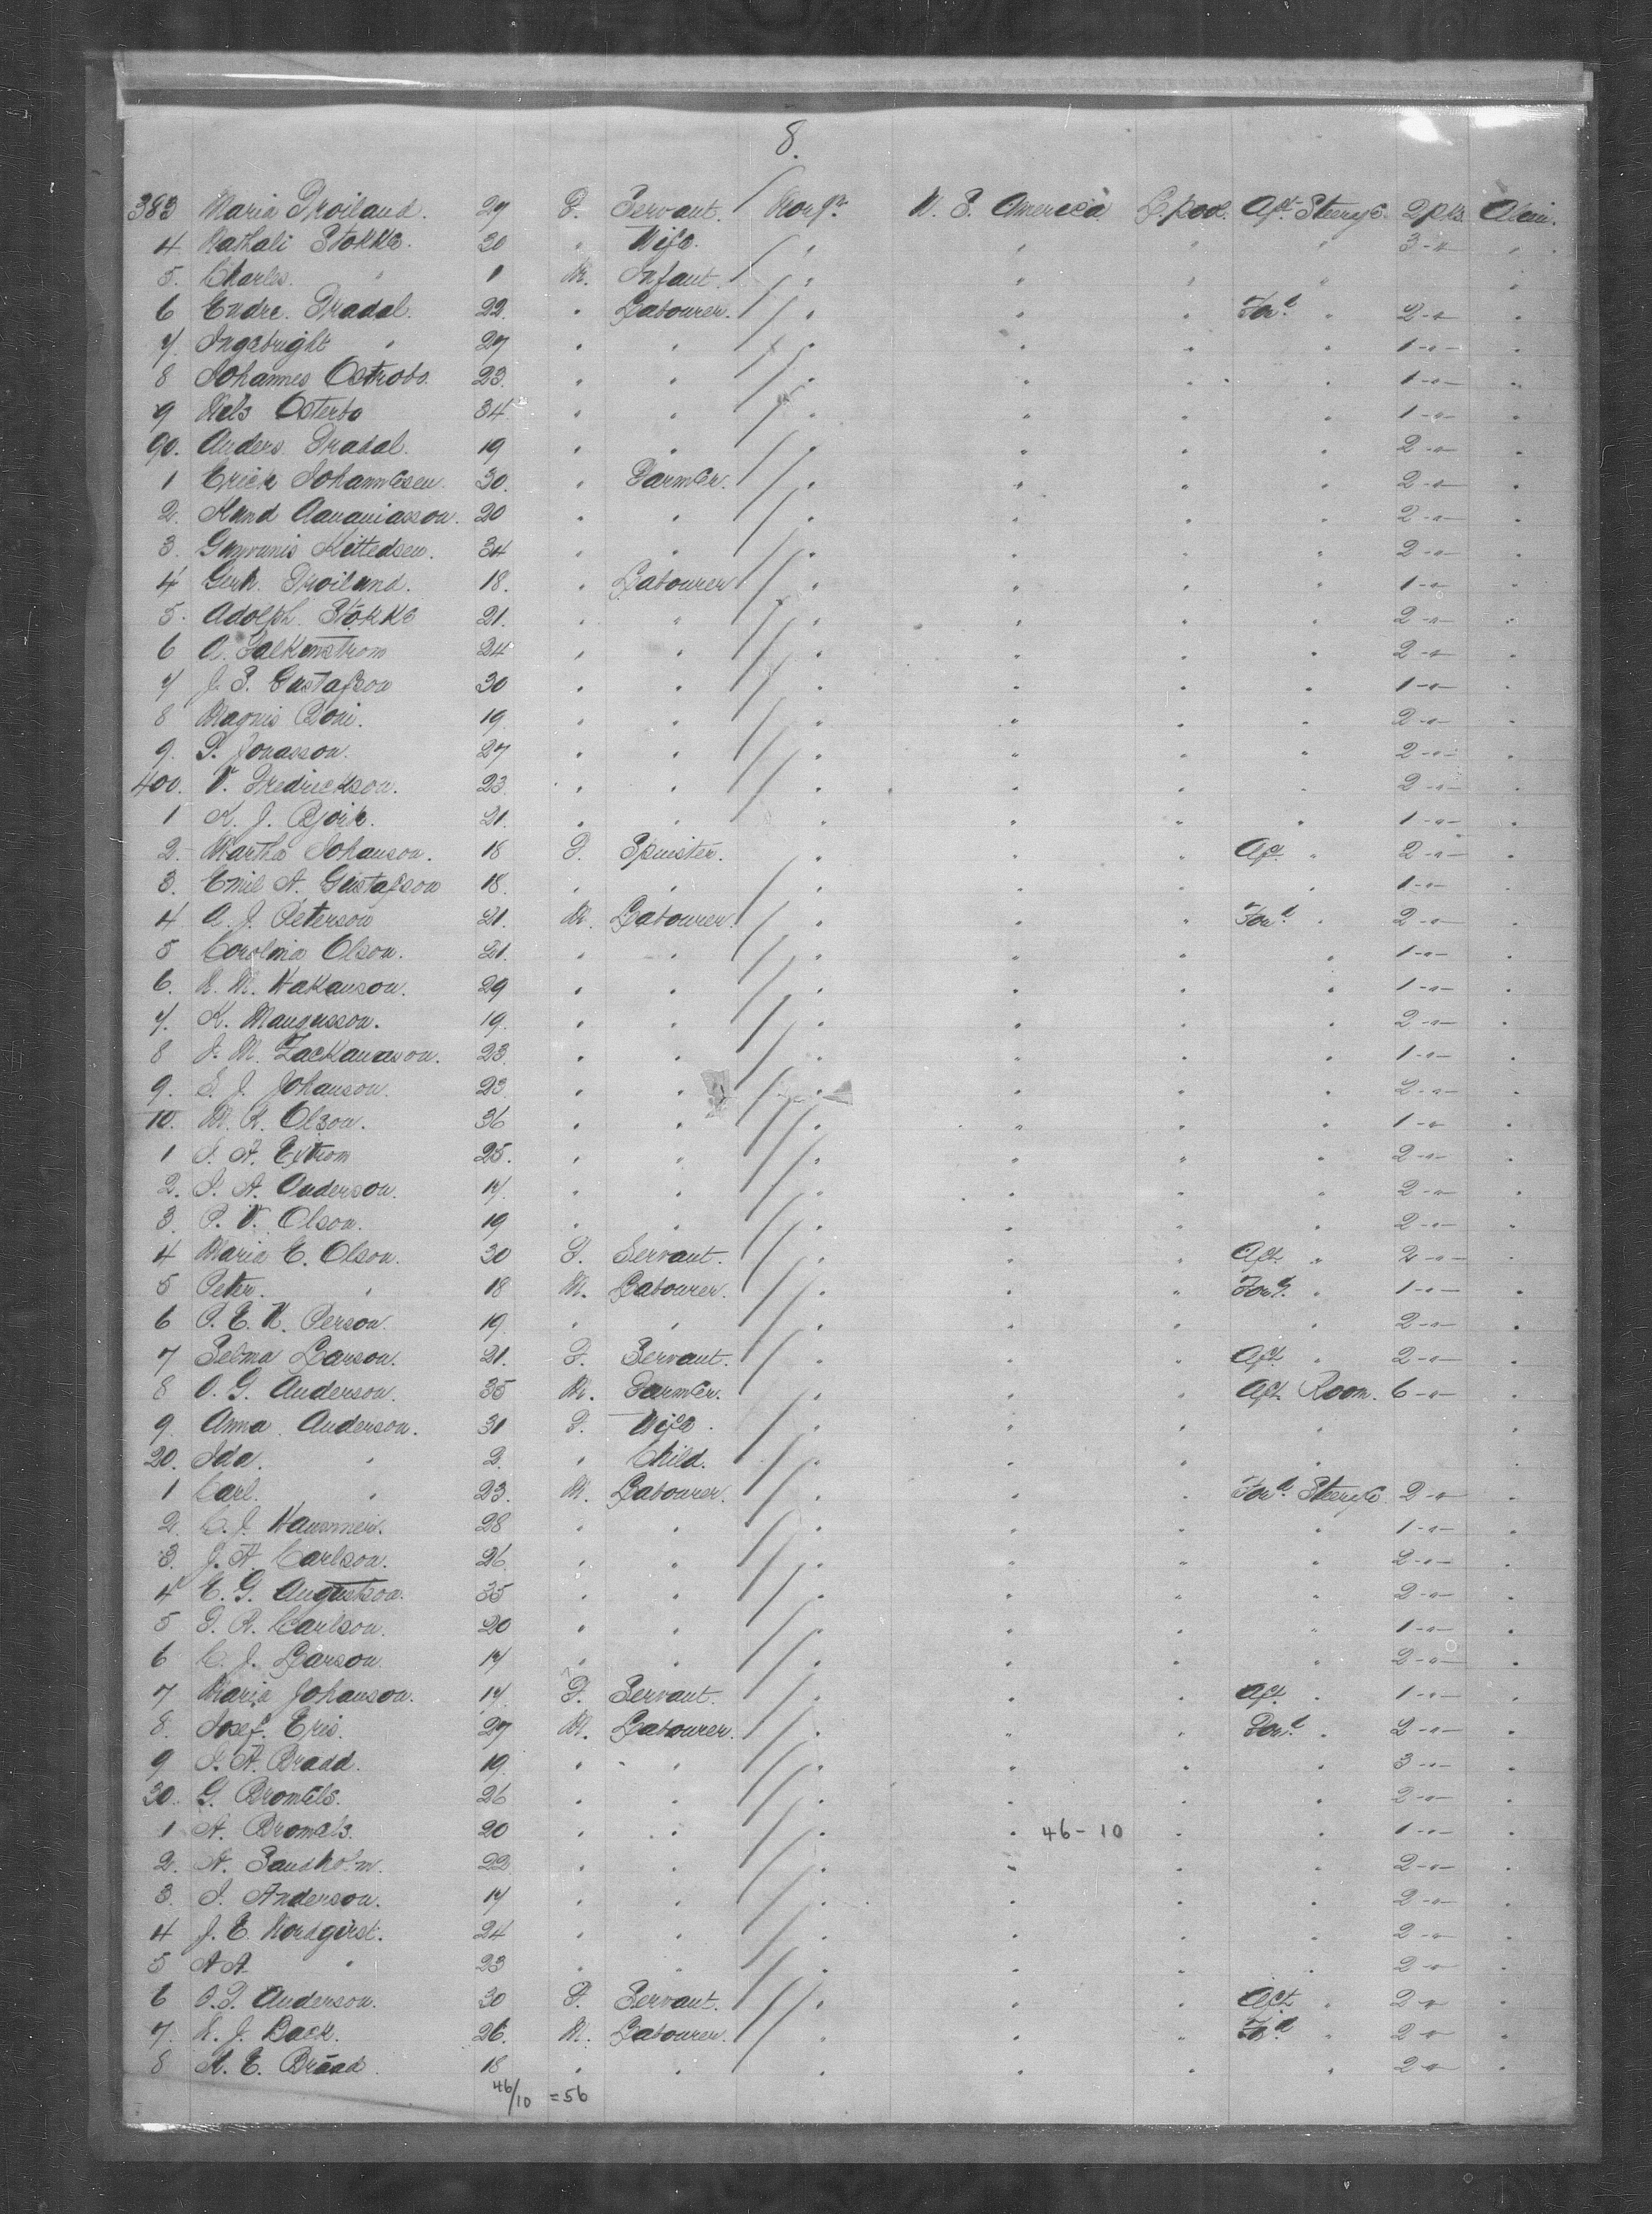 8.
383 Maria Troiland. 29 F. Servant. Norgn. U. S. America L. pool. Aft. Steerge. 2 pls. Akin.
4 Nathali Stokke. 30 " Wife. " " " " 3 - " - "
5. Charles. " 1 M. Infant. " " " " "
6 Endre. Tradal. 22. " Labourer. " " " Ford " 2 - " - "
7. Ingebright " 27 " " " " " " 1 - " - "
8 Johannes Ostrobo. 23. " " " " " " 1 - " - "
9 Nels Osterbo 34. " " " " " " 1 - " - "
90. Anders. Tradal. 19 " " " " " " 2 - " - "
1 Erick Johannesen. 30. " Farmer. " " " " 2 - " - "
2. Aananiasson. 20 " " " " " " 2 - " - "
3. Kittedsen. 34 " " " " " " 2 - " - "
4 Gerh. Troiland. 18. " Labourer " " " " 1 - " - "
5. Adolph. Stokke 21. " " " " " " 2 - " - "
6 A. Falkenstrom 24 " " " " " " 2 - " - "
7 J. P. Gustafson 30 " " " " " " 1 - " - "
8 Magnis Boni. 19. " " " " " " 2 - " - "
9. P. Jonasson. 27 " " " " " " 2 - " - "
400. V. Fredrickson. 23. " " " " " " 2 - " - "
1 K. J. Bjork. 21. " " " " " " 1 - " - "
2. Martha Johanson. 18 F. Spinster. " " " Aft. " 2 - " - "
3. Emil A. Gustafson 18. " " " " " " 1 - " - "
4 A. J. Peterson 21. M. Labourer. " " " Ford " 2 - " - "
5 Carolina Olson. 21. " " " " " " 1 - " - "
6. N. M. Hakanson. 29 " " " " " " 1 - " - "
7. K. Maugusson. 19. " " " " " " 2 - " - "
8 J. M. Zackanason. 23. " " " " " " 1 - " - "
9. S. J. Johanson. 23. " " " " " " 2 - " - "
10. M. K. Olson. 36 " " " " " " 1 - " - "
1 J. A. Extrom 25. " " " " " " 2 - " - "
2. J. A. Anderson. 17. " " " " " " 2 - " - "
3. P. V. Olson. 19 " " " " " " 2 - " - "
4 Maria C. Olson. 30 F. Servant. " " " Aft. " 2 - " - "
5 Peter. " 18 M. Labourer. " " " Ford. " 1 - " - "
6 P. E. N. Person. 19. " " " " " " 2 - " - "
7 Selma Larson. 21. F. Servant. " " " Aft " 2 - " - "
8 O. G. Anderson. 35 M. Farmer. " " " Aft. Room. 6 - " - "
9. Anna. Anderson. 31 F. Wife. " " " " "
20. Ida. " 2. " Child. " " " " "
1 Carl. " 23. M. Labourer. " " " Ford Steerge. 2 - " "
2. C. J. Hammer. 28 " " " " " " 1 - " - "
3. J. A. Carlson. 26. " " " " " " 2 - " - "
4 C. G. Augustson. 35 " " " " " " 2 - " - "
5 G. R. Carlson. 20 " " " " " " 1 - " - "
6 C. J. Larson. 17 " " " " " " 2 - " - "
7 Maria Johanson. 17. F. Servant. " " " Aft. " 1 - " - "
8. Josef. Eris. 27 M. Labourer. " " " Ford " 2 - " - "
9 J. A. Bradd. 19. " " " " " " 3 - " - "
30. G. Bromels. 26 " " " " " " 2 - " - "
1 A. Bromels. 20 " " " " 46 - 10 " " 1 - " - "
2. A. Sandholm. 22 " " " " " " 2 - " - "
3. J. Anderson. 17 " " " " " " 2 - " - "
4 J. E. Nordqirst. 24 " " " " " " 2 - " - "
5 A A " 23 " " " " " " 2 " "
6 Anderson. 30 F. Servant. " " " Aft " 2 " "
7. N. J. Back. 26. M. Labourer. " " " Ford " 2 " "
8 A. E. Braad. 18 " " " " " " 2 " "
46/10 = 56